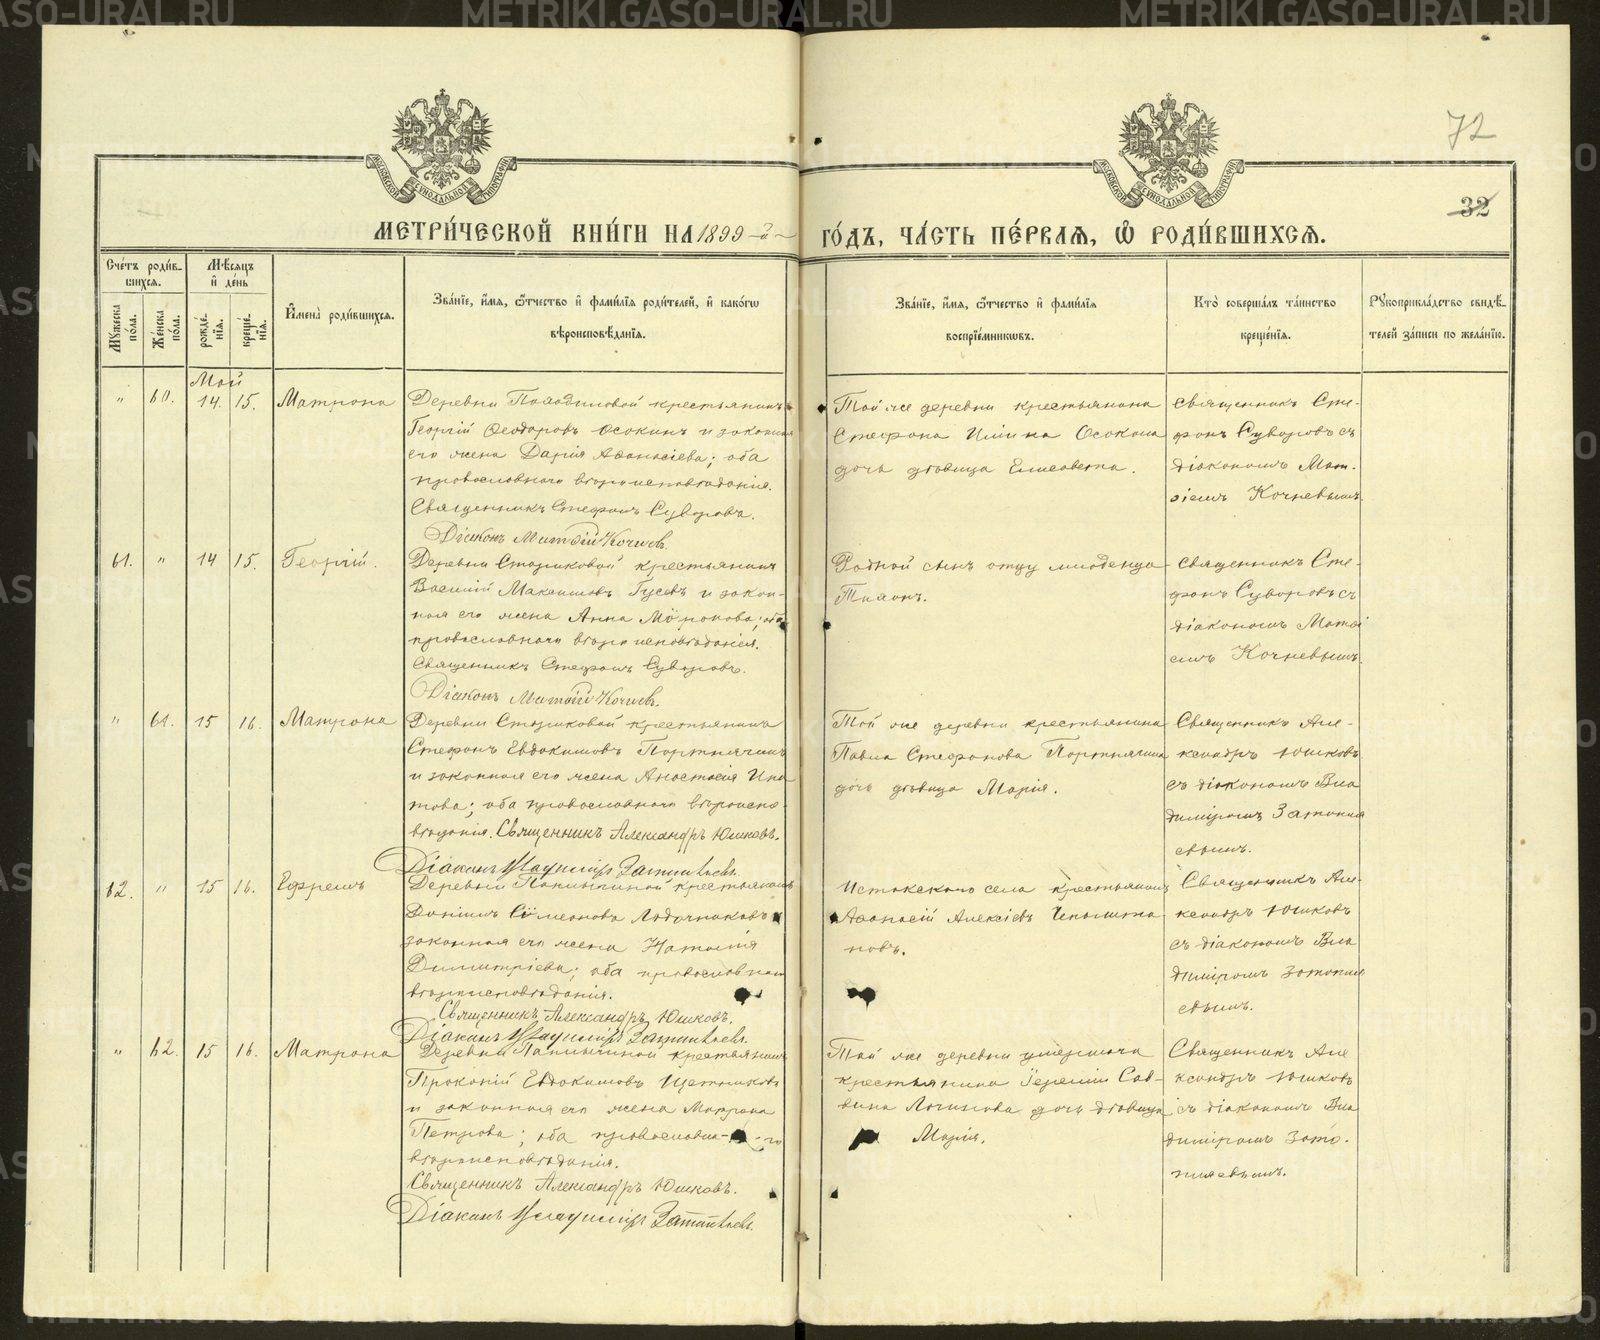 72
32
МЕТРИ́ЧЕСКОЙ КНИ́ГИ НА 1899 й
ГО́ДЪ, ЧА́СТЬ ПЕ́РВАЯ, Ѽ РОДИ́ВШИХСЯ.
Сче́тъ роди́в-
шихся.
Му́жеска
по́ла.
Же́нска
по́ла.
Мѣ́сяцъ
и҆ де́нь
рожде́-
нїя.
креще́-
нїя.
И҆мена̀ роди́вшихся.
Зва́нїе, и҆́мя, ѻ҆́тчество и҆ фами́лїя роди́телей, и҆ како́гѡ
вѣроисповѣ́данїя.
Зва́нїе, и҆́мя, ѻ҆́тчество и҆ фами́лїя
воспрїе́мникѡвъ.
Кто̀ соверша́лъ та́инство
креще́нїя.
Рꙋкоприкла́дство свидѣ́-
телей за́писи по жела́нїю.
Май
" 60. 14. 15. Матрона
Деревни крестьянинъ
Георгій Ѳеодоровъ Осокинъ и законная
его жена Дарія Аѳанасіева; оба
православнаго вѣроисповѣданія.
Священникъ Стефанъ Суворовъ.
Діаконъ Матѳій Кочневъ.
Той же деревни крестьянина
Стефана Осокина
дочь дѣвица Елисавета.
Священникъ Сте-
фанъ Суворовъ съ
діакономъ Мат-
ѳіемъ Кочневымъ.
61. " 14 15. Георгій.
Деревни крестьянинъ
Василій Максимовъ Гусевъ и закон-
ная его жена Анна Миронова; оба
православнаго вѣроисповѣданія.
Священникъ Стефанъ Суворовъ.
Діаконъ Матѳій Кочневъ.
Родной сынъ отцу младенца
Тихонъ.
Священникъ Сте-
фанъ Суворовъ съ
діакономъ Матѳі
емъ Кочневымъ.
" 61. 15 16. Матрона
Деревни крестьянинъ
Стефанъ Евдокимовъ Портнягинъ
и законная его жена Анастасія Ипа
това; оба православнаго вѣроиспо-
вѣданія. Священникъ Александръ Юшковъ.
Діаконъ Владиміръ
Той же деревни крестьянина
Павла Стефанова Портнягина
дочь дѣвица Марія.
Священникъ Але-
ксандръ Юшковъ
съ діакономъ Вла
диміромъ Затопля
евымъ.
62. " 15 16. Ефремъ
Деревни крестьянинъ
Симеоновъ Лодочниковъ и
законная его жена Наталія
Димитріева; оба православнаго
вѣроисповѣданія.
Священникъ Александръ Юшковъ.
Діаконъ Владиміръ
Истокскаго села крестьянинъ
Аѳанасій Алексіевъ
новъ.
Священникъ Але-
ксандръ Юшковъ
съ діакономъ Вла
диміромъ Затопля
евымъ.
" 62. 15 16. Матрона
Деревни крестьянинъ
Прокопій Евдокимовъ Щетниковъ
и законная его жена Матрона
Петрова; оба православнаго
вѣроисповѣданія.
Священникъ Александръ Юшковъ.
Діаконъ Владиміръ
Той же деревни умершаго
крестьянина Іереміи Сав-
вина Логинова дочь дѣвица
Марія.
Священникъ Але
ксандръ Юшковъ
съ діакономъ Вла
диміромъ Зато-
пляевымъ.